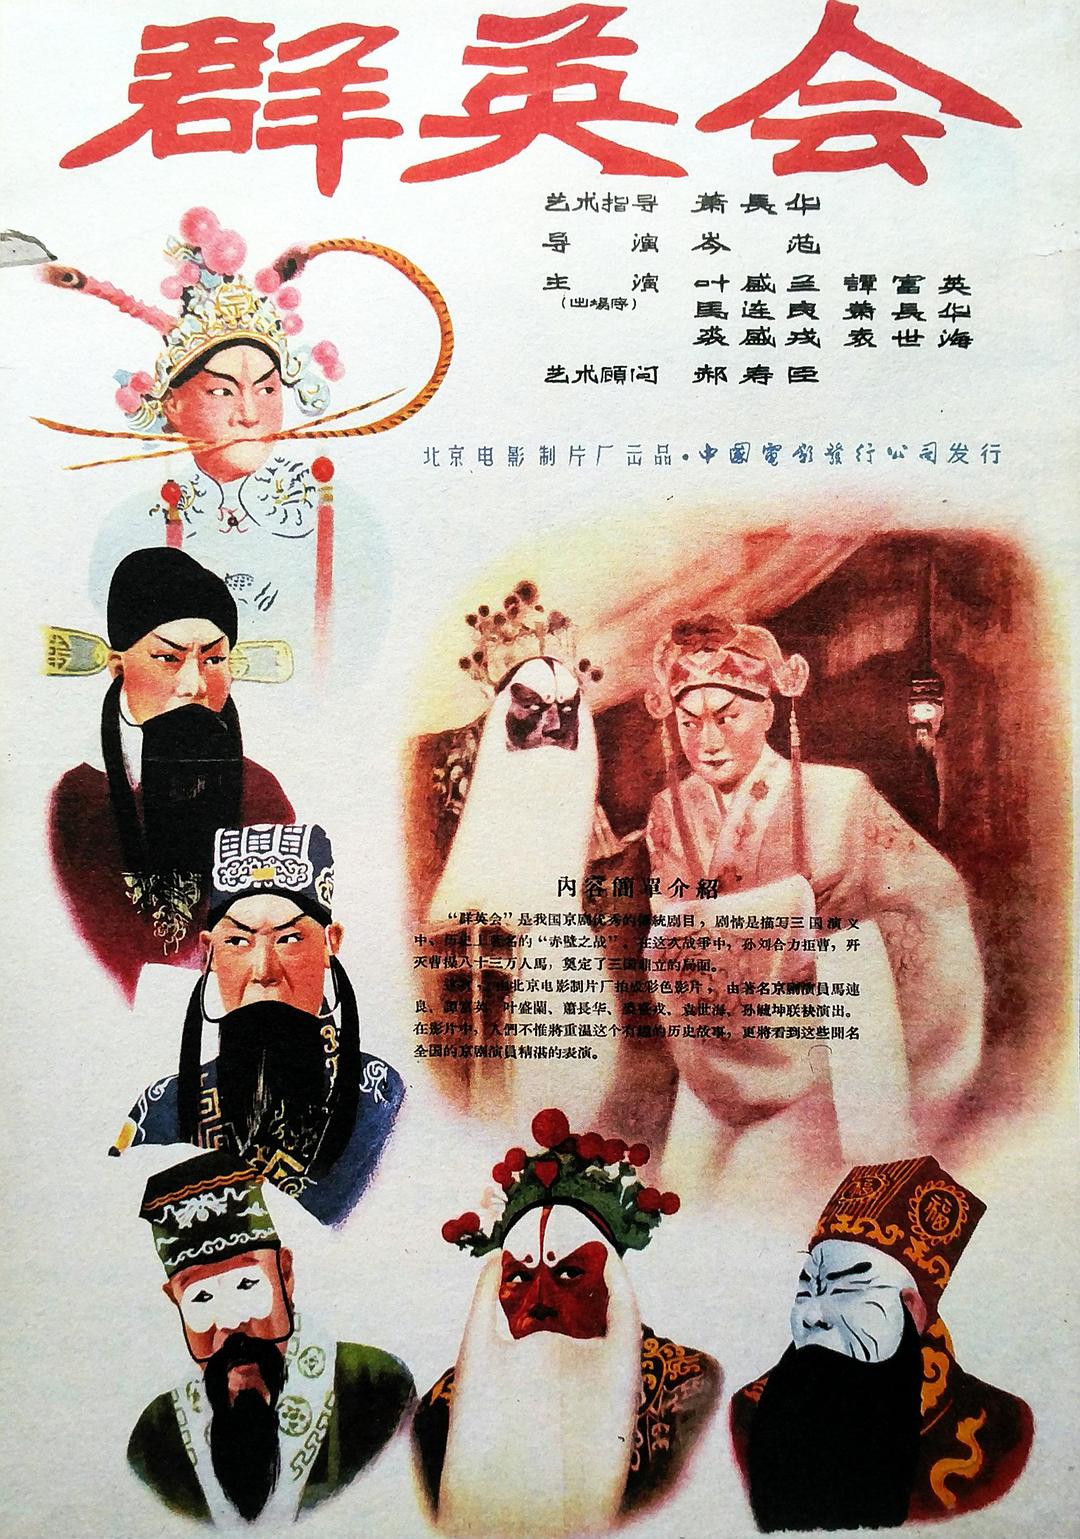 群英会
艺术指导 萧長华
导演 岑范
主演 叶盛兰 譚富英
(出場序) 馬连良 萧長华
裘盛戎 袁世海
艺术顧问 郝寿臣
北京电影制片厂出品·中國電影發行公司发行
內容簡單介紹
“群英会”是我国京剧优秀的傳統剧目，剧情是描写三国演义
中、历史上著名的“赤壁之战”。在这次战爭中，孙刘合力拒曹，歼
灭曹操八十三万人馬，奠定了三国鼎立的局面。
由北京电影制片厂拍成彩色影片，由著名京剧演員馬連
良、譚富英、叶盛蘭、蕭長华、裘盛戎、袁世海、孙毓坤联袂演出。
在影片中，人們不惟將重温这个有趣的历史故事，更將看到这些聞名
全国的京剧演員精湛的表演。
福
福